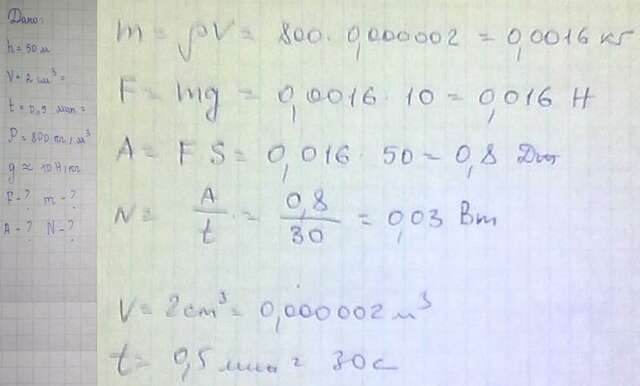 Дано:
h = 50 м
V = 2 см³ =
t = 0,5 мин =
ρ = 800 кг/м³
g ≈ 10 Н/кг
F - ? m - ?
A - ? N - ?
m = ρV = 800 · 0,000002 = 0,0016 кг
F = mg = 0,0016 · 10 = 0,016 Н
A = FS = 0,016 · 50 = 0,8 Дж
N = A/t = 0,8/30 = 0,03 Вт
V = 2 см³ = 0,000002 м³
t = 0,5 мин = 30 с